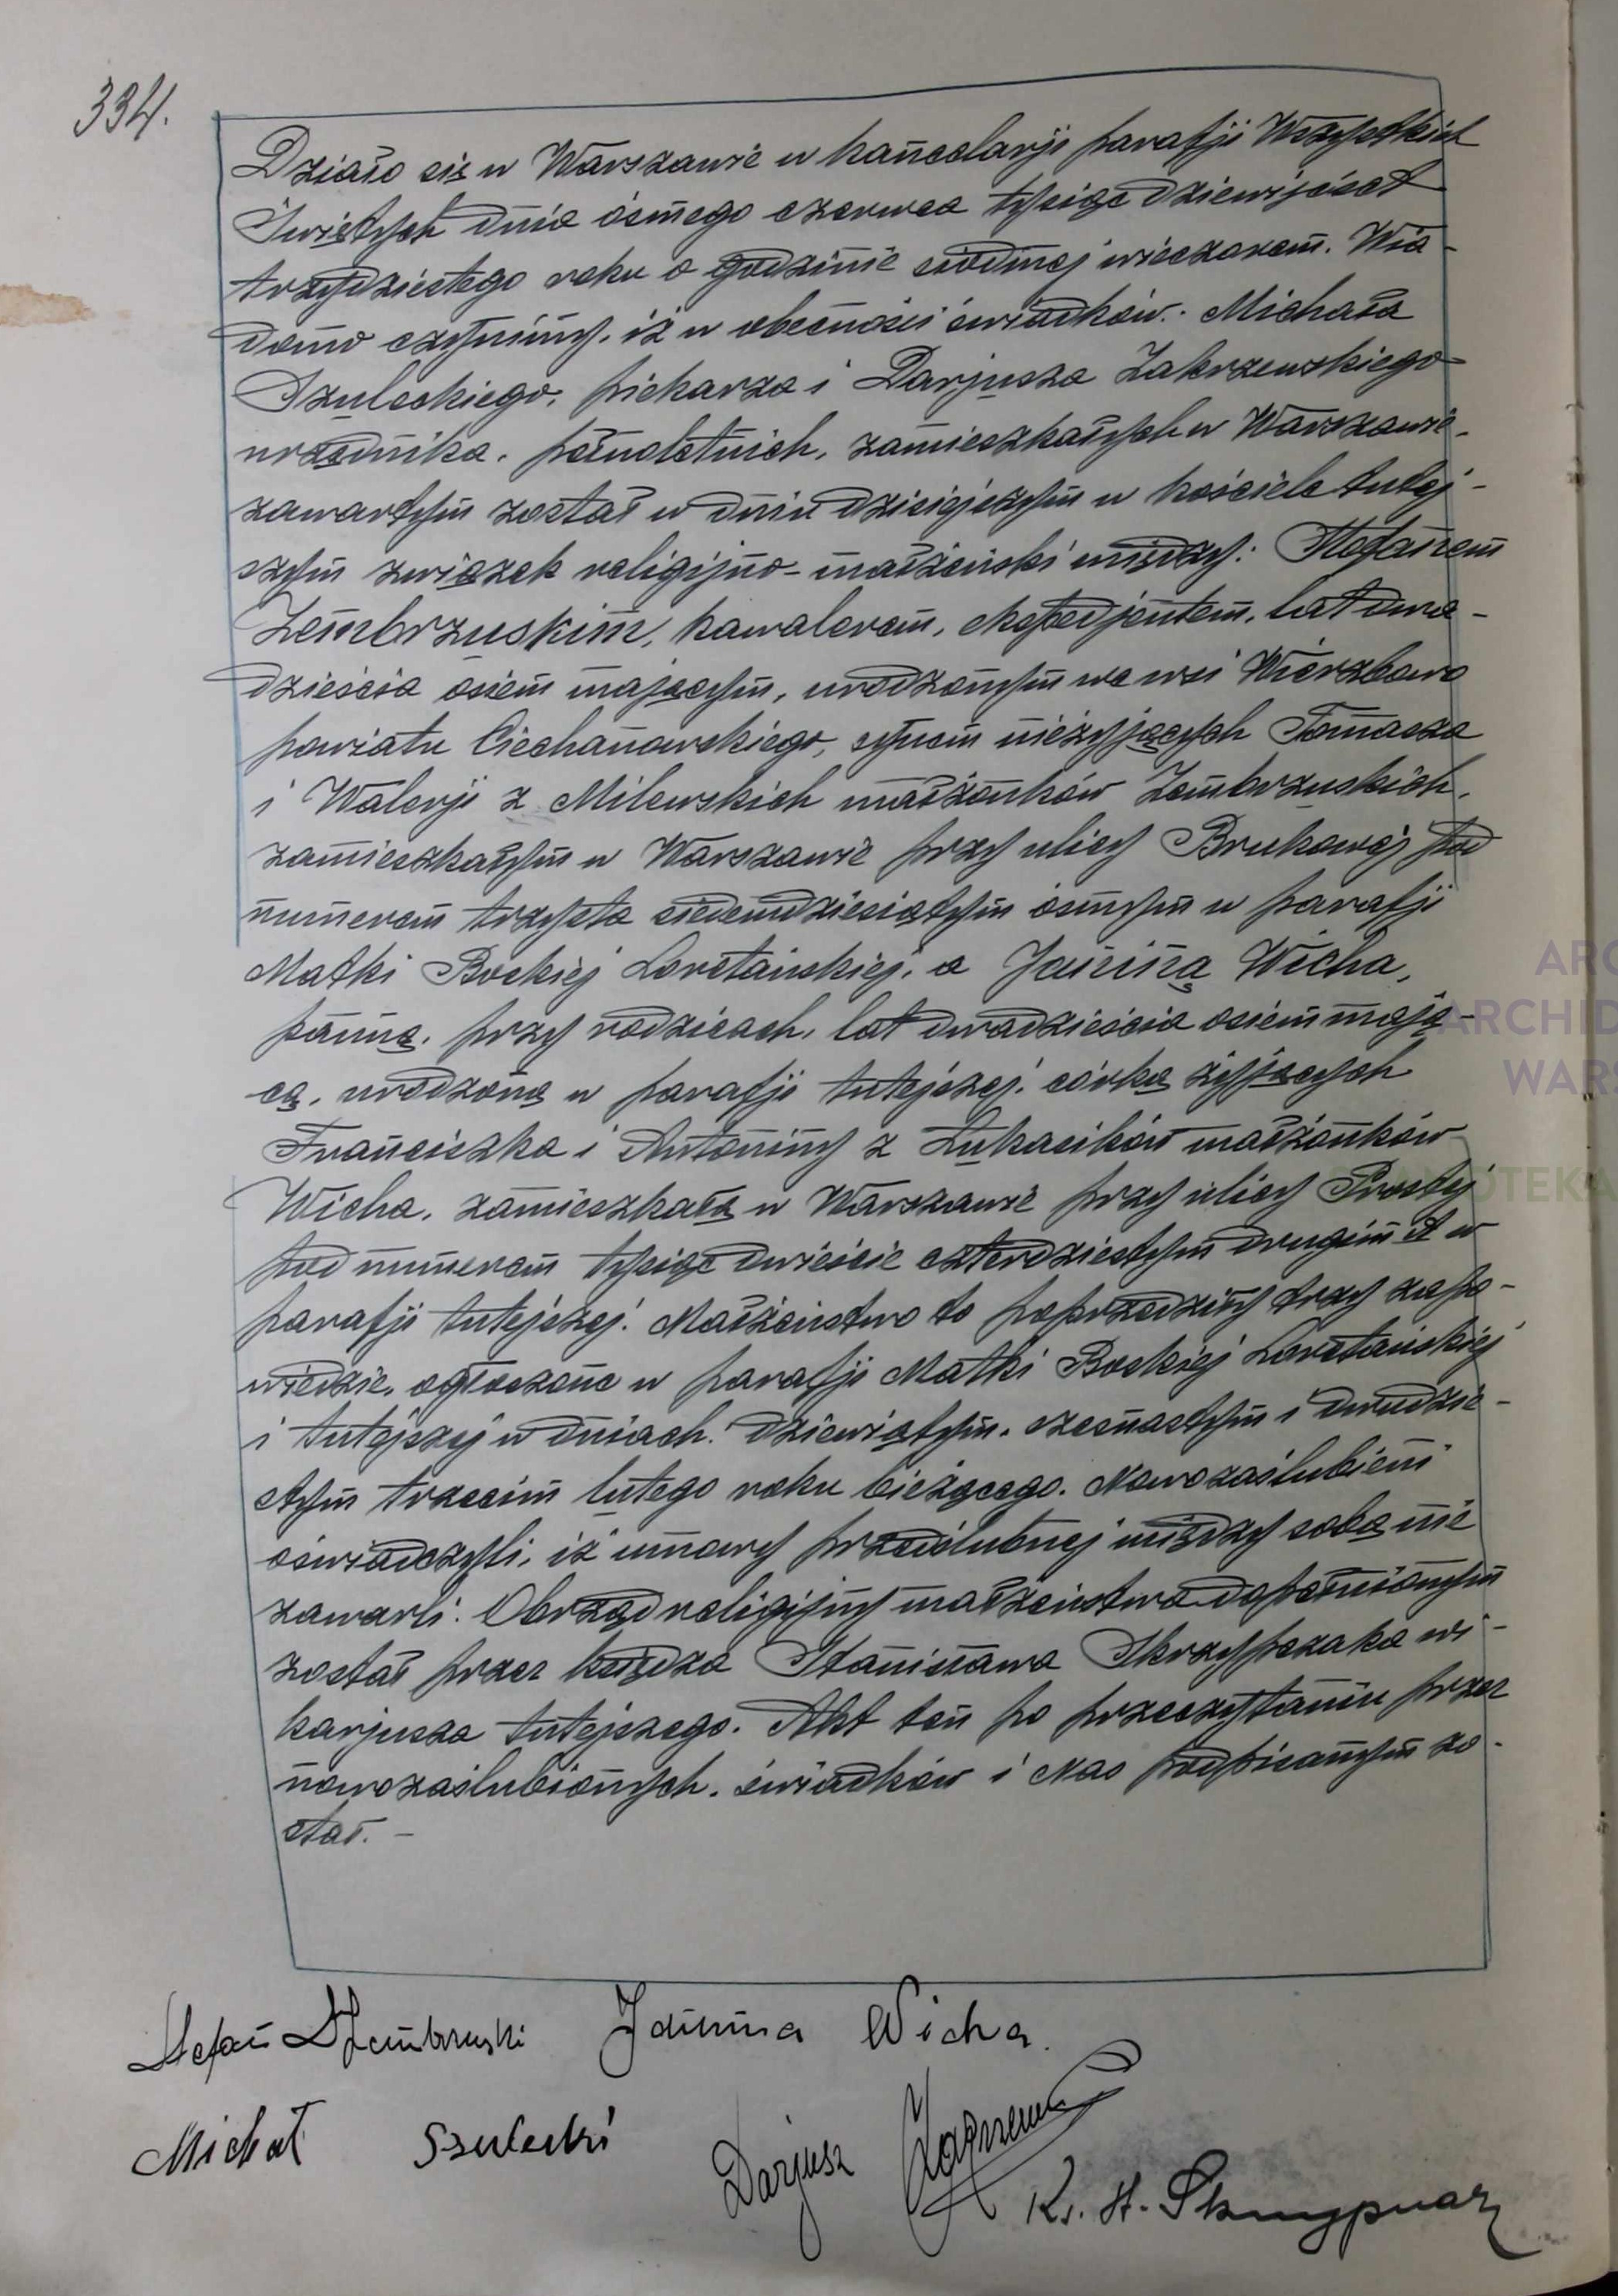 334.
Działo się w Warszawie w kancelarji parafji Wszystkich
Świętych dnia ósmego czerwca tysiąc dziewięćset
trzydziestego roku o godzinie siódmej wieczorem. Wia-
domo czynimy, iż w obecności świadków: Michała
Szuleckiego, piekarza i Darjusza Zakrzewskiego
urzędnika, pełnoletnich, zamieszkałych w Warszawie,
zawartym został w dniu dzisiejszym w kościele tutej-
szym związek religijno-małżeński między: Stefanem
Zembrzuskim, kawalerem, ekspedjentem, lat dwa-
dzieścia osiem mającym, urodzonym we wsi Wierzbowo
powiatu Ciechanowskiego, synem nieżyjących Tomasza
i Walerji z Milewskich małżonków Zembrzuskich,
zamieszkałym w Warszawie przy ulicy Brukowej pod
numerem trzysta siedemdziesiątym ósmym w parafji
Matki Boskiej Loretańskiej, a Janiną Wicha,
panną, przy rodzicach, lat dwadzieścia osiem mają-
cą, urodzoną w parafji tutejszej, córką żyjących
Franciszka i Antoniny z Łukasików małżonków
Wicha, zamieszkałą w Warszawie przy ulicy Prostej
pod numerem tysiąc dwieście czterdziestym drugim A w
parafji tutejszej. Małżeństwo to poprzedziły trzy zapo-
wiedzie, ogłoszone w parafji Matki Boskiej Loretańskiej
i tutejszej w dniach: dziewiątym, szesnastym i dwudzie-
stym trzecim lutego roku bieżącego. Nowozaślubieni
oświadczyli, iż umowy przedślubnej między sobą nie
zawarli. Obrząd religijny małżeństwa dopełnionym
został przez księdza Stanisława Skrzypczaka wi-
karjusza tutejszego. Akt ten po przeczytaniu przez
nowozaślubionych, świadków i Nas podpisanym zo-
stał. –
Stefan Zembrzuski Janina Wicha.
Michał Szulecki Darjusz Zakrzewski
Ks. St. Skrzypczak
ARC
ARCHID
WARS
OTEKA